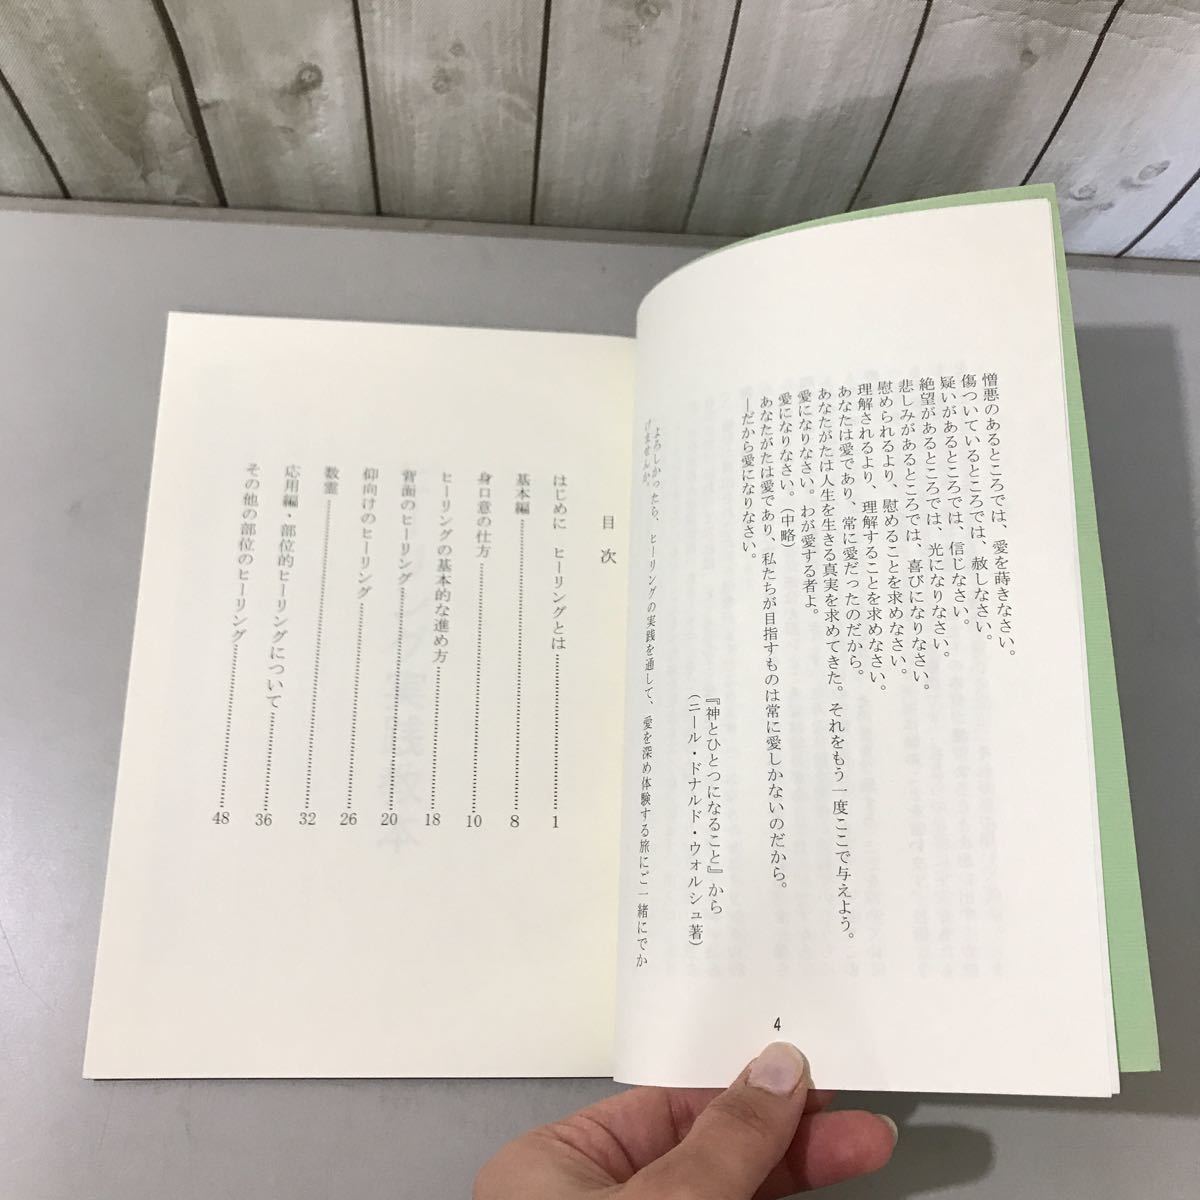 憎悪のあるところでは、愛を蒔きなさい。
傷ついているところでは、赦しなさい。
疑いがあるところでは、信じなさい。
絶望があるところでは、光になりなさい。
悲しみがあるところでは、喜びになりなさい。
慰められるより、慰めることを求めなさい。
理解されるより、理解することを求めなさい。
あなたは愛であり、常に愛だったのだから。
あなたがたは人生を生きる真実を求めてきた。それをもう一度ここで与えよう。
愛になりなさい。わが愛する者よ。
愛になりなさい。(中略)
あなたがたは愛であり、私たちが目指すものは常に愛しかないのだから。
―だから愛になりなさい。
『神とひとつになること』から
(ニール・ドナルド・ウォルシュ著)
よろしかったら、ヒーリングの実践を通して、愛を深め体験する旅にご一緒にでか
けませんか。
4
目次
はじめに ヒーリングとは……………………1
基本編……………………8
身口意の仕方……………………10
ヒーリングの基本的な進め方……………………18
背面のヒーリング……………………20
仰向けのヒーリング……………………26
数霊……………………32
応用編・部位的ヒーリングについて……………………36
その他の部位のヒーリング……………………48